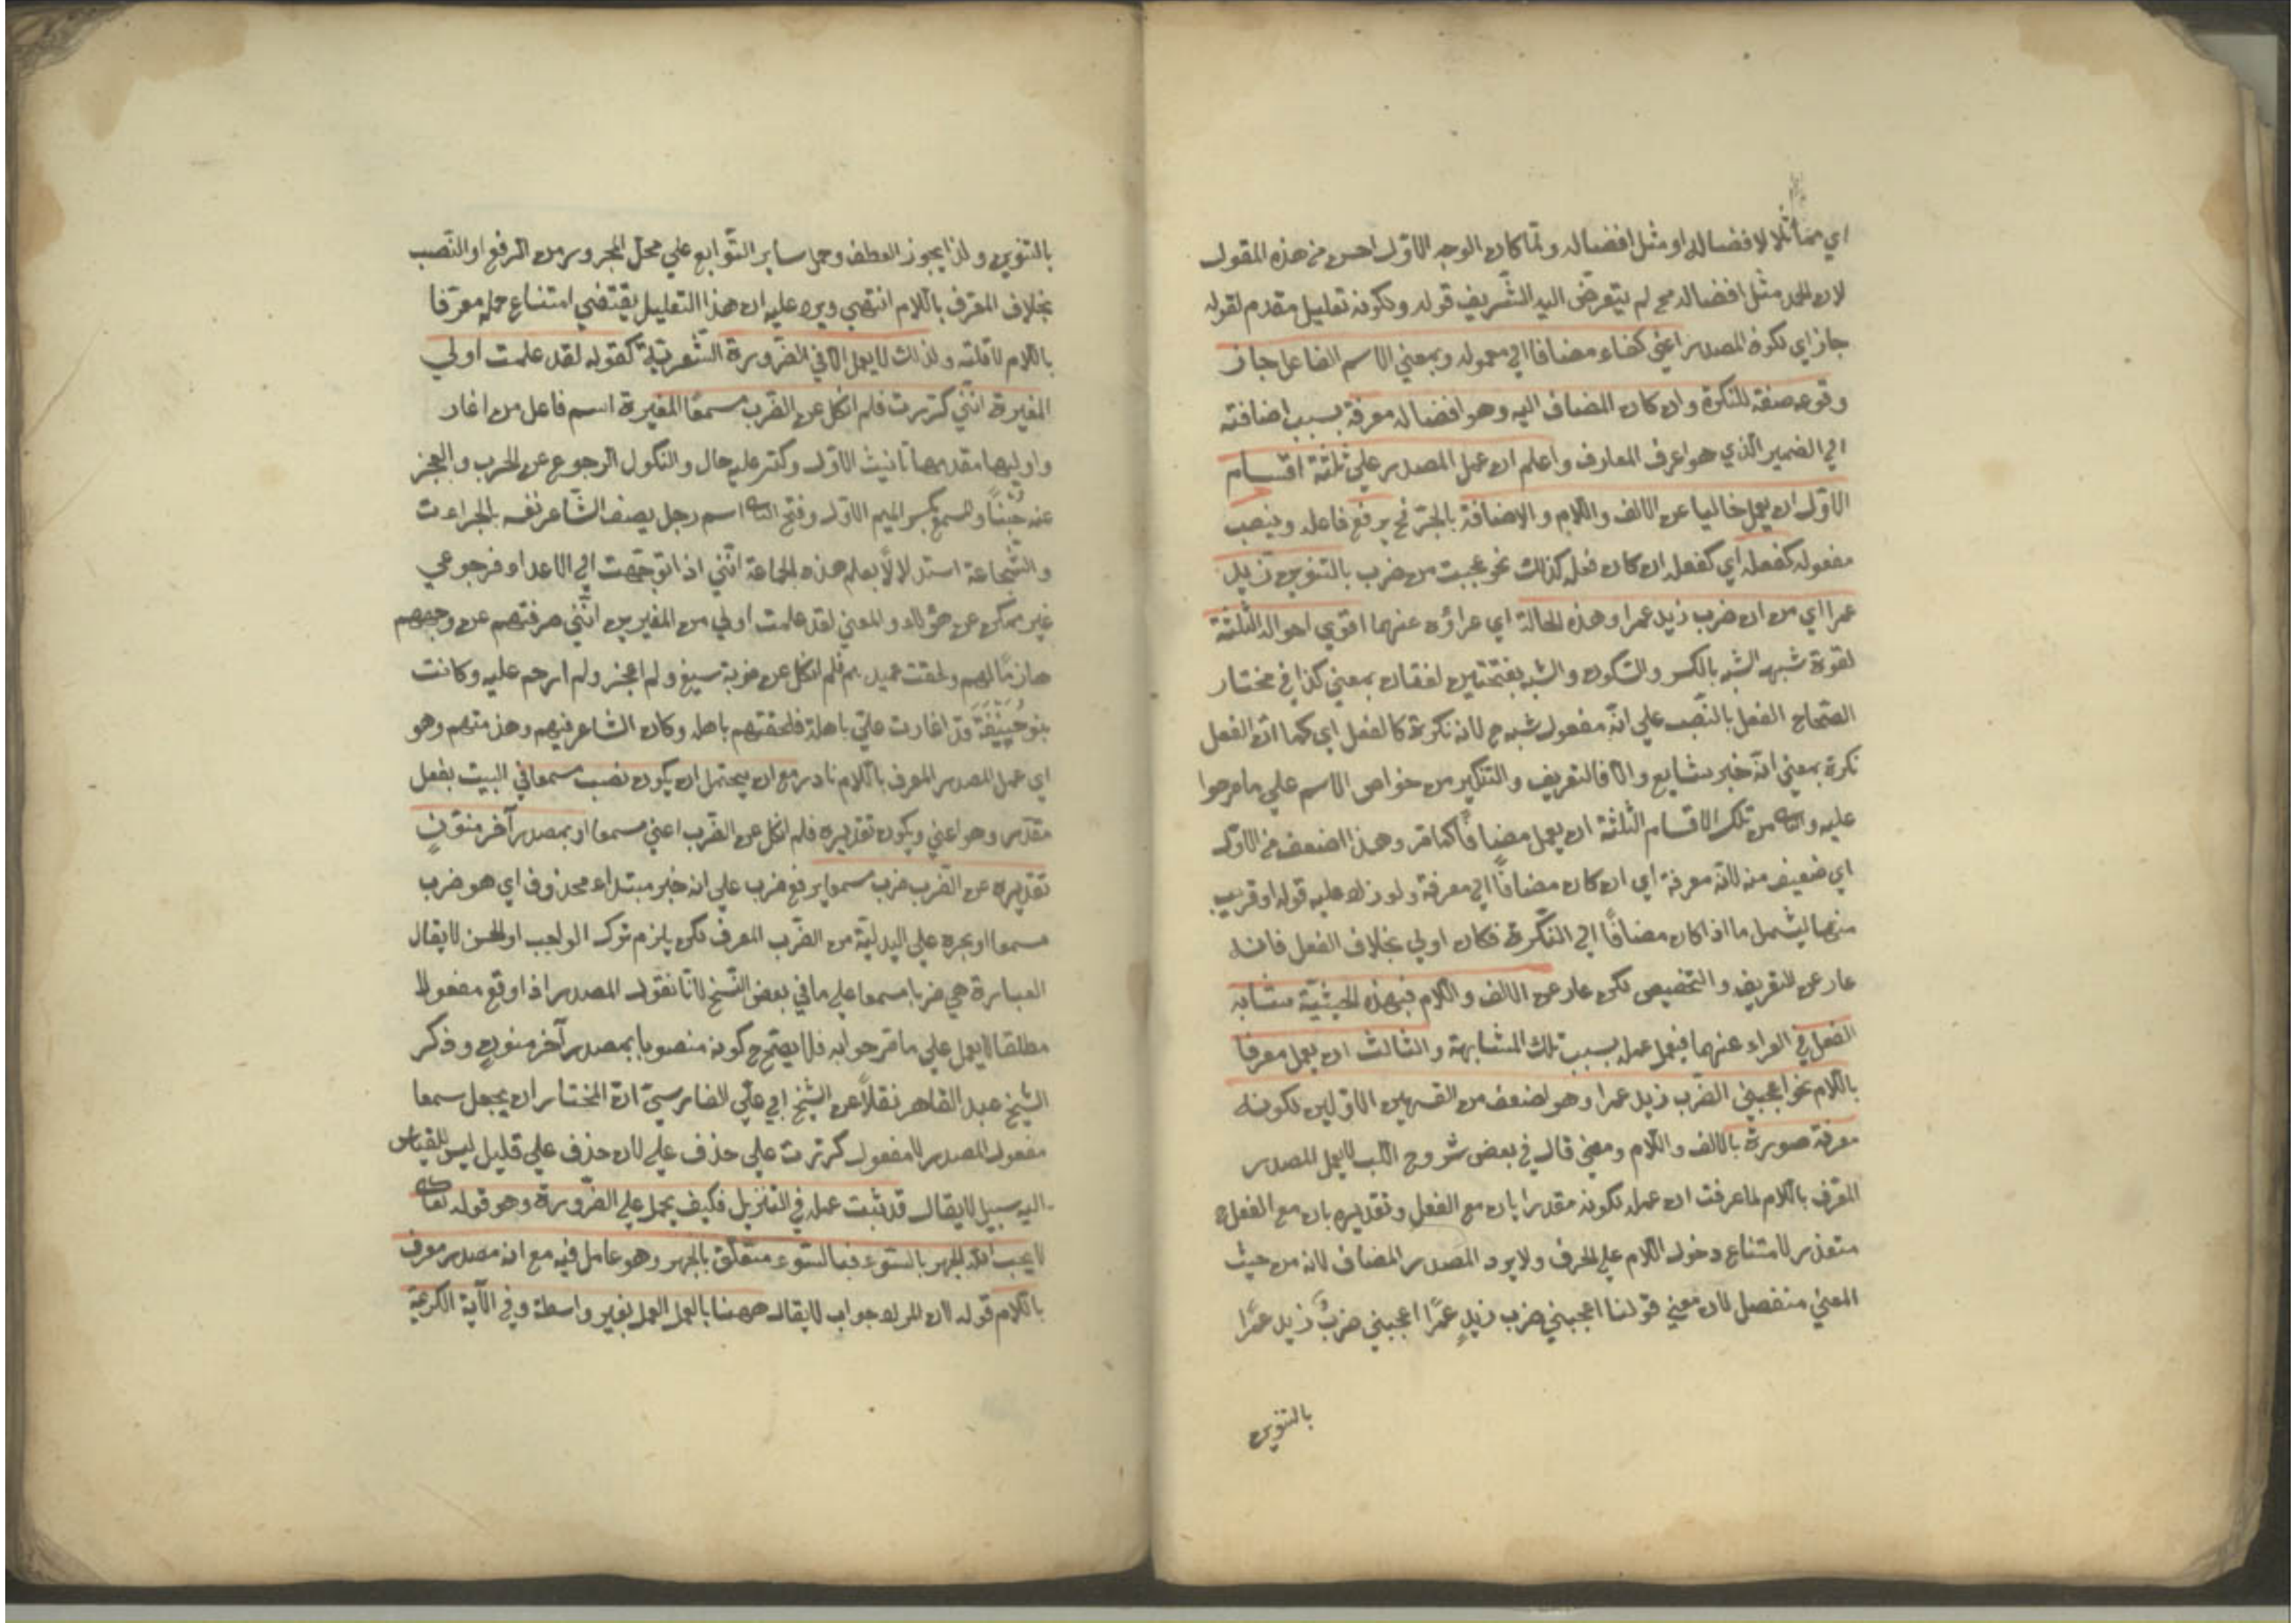 اي مماثلا لافضاله او مثل افضاله ولما كان الوجه الاول احسن من هذه المقول
لان الحمد مثل افضاله مح لم يتعرض اليه الشريف قوله ولكونه تعليل مقدم لقوله
جاز اي لكون المصدر اعني كفاء مضافا الي معموله وبمعني الاسم الفاعل جاز
وقوعه صفة للنكرة وان كان المضاف اليه وهو افضاله معرفة بسبب اضافته
الي الضمير الذي هو اعرف المعارف واعلم ان عمل المصدر علي ثلثة اقسام
الاول ان يعمل خاليا عن الالف واللام والاضافة بالجر نح يرفع فاعله وينصب
مفعوله كفعله اي كفعله ان كان فعله كذلك نحو عجبت من ضرب بالتنوين زيد
عمرا اي من ان ضرب زيد عمرا وهذه الحالة اي عراؤه عنهما اقوي احواله الثلثة
لقوة شبهه الشبه بالكسر والسكون والشبه بفتحتين لغتان بمعني كذا في مختار
الصحاح الفعل بالنصب علي انه مفعول شبه ح لانه نكرة كالفعل اي كما ان الفعل
نكرة بمعني انه خبر شايع والا فالتعريف والتنكير من خواص الاسم علي ما صرحوا
عليه والثاني من تلك الاقسام الثلثة ان يعمل مضافًا كما مر وهذا اضعف من الاول
اي ضعيف منه لانه معرفة اي ان كان مضافًا الي معرفة ولو زاد عليه قوله او قريب
منها ليشمل ما اذا كان مضافًا الي النكرة فكان اولي بخلاف الفعل فانه
عار عن التعريف والتخصيص لكن عار عن الالف واللام فبهذه الحيثية مشابه
الفعل في العراء عنهما فيعمل عمله بسبب تلك المشابهة والثالث ان يعمل معرفا
باللام نحو اعجبني الضرب زيد عمرا وهو اضعف من القسمين الاولين لكونه
معرفة صورة بالالف واللام ومعني قال في بعض شروح اللب لا يعمل المصدر
المعرف باللام لما عرفت ان عمله لكونه مقدرا بان مع الفعل وتقديره بان مع الفعل
متعذر لامتناع دخول اللام علي الحرف ولا يرد المصدر المضاف لانه من حيث
المعني منفصل لان معني قولنا اعجبني ضرب زيدٍ عمرًا اعجبني ضربٌ زيد عمرًا
بالتنوين
بالتنوين ولذا يجوز العطف وحمل ساير التوابع علي محل المجرور من الرفع او النصب
بخلاف المعرف باللام انتهي ويرد عليه ان هذا التعليل يقتضي امتناع عمله معرفا
باللام لا قلته ولذلك لا يعمل الا في الضرورة الشعرية كقوله لقد علمت اولي
المغيرة انني كررت فلم انكل عن الضرب مسمعًا المغيرة اسم فاعل من اغار
واوليها مقدمها تانيث الاول وكثر عليه حال والنكول الرجوع عن الحرب والعجز
عنه جُبْنًا والمسمع بكسر الميم الاول وفتح الثاني اسم رجل يصف الشاعر نفسه بالجراءت
والشجاعة استدلالًا بعلم هذه الجماعة انني اذا توجهت الي الاعداء فرجوعي
غير ممكن عن هؤلاء والمعني لقد علمت اولي من المغيرين انني صرفتهم عن وجههم
هازمًا لهم ولحقت عميدهم فلم انكل عن ضربه بسيفي ولم اعجز ولم ارحم عليه وكانت
بنو حنيفة قد اغارت علي باهلة فلحقتهم باهلة وكان الشاعر فيهم وهزمتهم وهو
اي عمل المصدر المعرف باللام نادر مع ان يحتمل ان يكون نصب مسمعا في البيت بفعل
مقدر وهو اعني ويكون تقديره فلم انكل عن الضرب اعني مسمعا او بمصدر آخر منونٍ
تقديره عن الضرب ضرب مسمعا برفع ضرب علي انه خبر مبتداء محذوف اي هو ضرب
مسمعا او بجره علي البدلية من الضرب المعرف لكن يلزم ترك الواجب او الحسن لا يقال
العبارة هي ضربا مسمعا علي ما في بعض النسخ لانا نقول المصدر اذا وقع مفعولا
مطلقا لا يعمل علي ما مر جوابه فلا يصح ح كونه منصوبا بمصدر آخر منون وذكر
الشيخ عبد القاهر نقلًا عن الشيخ ابي علي الفارسي ان المختار ان يجعل مسمعا
مفعول المصدر لا مفعول كررت علي حذف علي لان حذف علي قليل ليس للقياس
اليه سبيل لا يقال قد ثبت عمله في التنزيل فكيف يحمل علي الضرورة وهو قوله تعالى
لا يحب الله الجهر بالسوء فبالسوء متعلق بالجهر وهو عامل فيه مع انه مصدر معرف
باللام قوله لان المراد جواب لا يقال ههنا بالعمل العمل بغير واسطة وفي الآية الكريمة